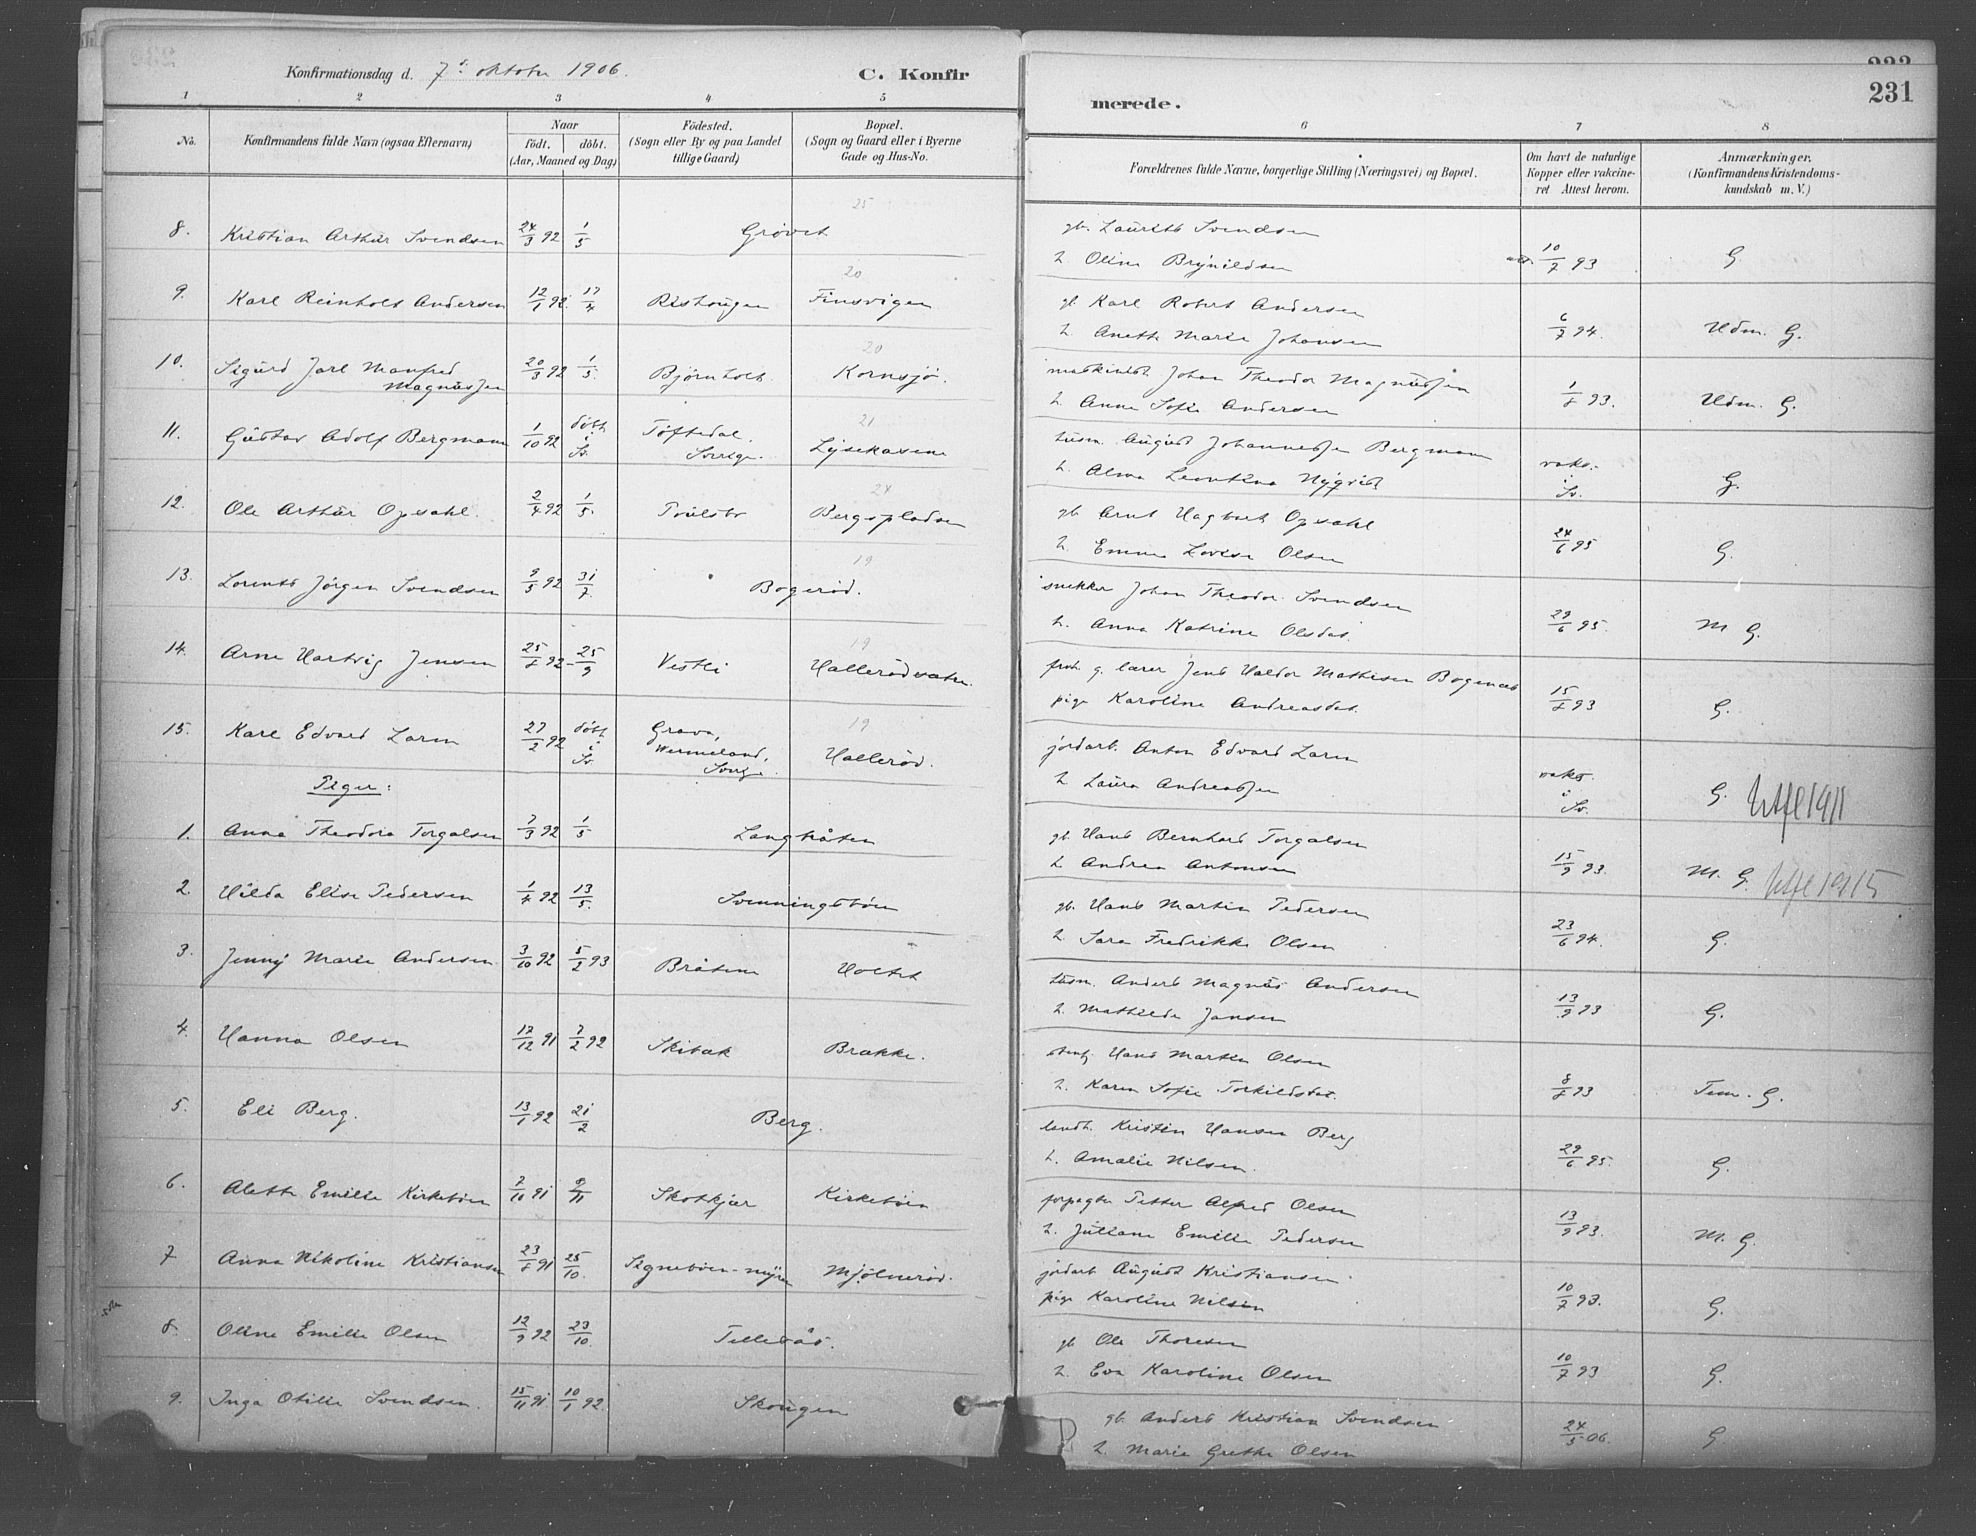 Konfirmationsdag d. 7de oktober 1906.
C. Konfirmerede.
231
1 2 3 4 5 6 7 8
No.
Konfirmandens fulde Navn (ogsaa Efternavn)
Naar
födt. döbt.
(Aar, Maaned og Dag)
Födested.
(Sogn eller By og paa Landet
tillige Gaard)
Bopæl.
(Sogn og Gaard eller i Byerne
Gade og Hus-No.
Forældrenes fulde Navne, borgerlige Stilling (Næringsvei) og Bopæl.
Om havt de naturlige
Kopper eller vakcine-
ret Attest herom.
Anmærkninger.
(Konfirmandens Kristendoms-
kundskab m. V.)
25
8. Kristian Arthur Svendsen 24/3 92 1/5 Grövet gb. Laurits Svendsen
h. Oline Brynildsen 10/7 93 G.
20
9. Karl Reinholt Andersen 12/1 92. 17/4 Rishougen Finsvigen gb. Karl Robert Andersen
h. Anette Marie Johansen 6/7 94. Udm. G.
20
10. Sigurd Jarl Manfred
Magnussen 20/3 92 1/5. Björnholt. Kornsjö. maskinist Johan Theodor Magnussen
h. Anna Sofie Andersen 1/8 93. Udm. G.
21
11. Gustav Adolf Bergmann 1/10 92 döbt i Sv. Töftedal. Sverige. Lysekasene husm. August Johannessen Bergmann
h. Alma Leontina Nyqvist vaks. i Sv. G.
24
12. Ole Arthur Opsahl. 2/4 92 1/5. Bergspladsen gb. Arnt Hagbart Opsahl
h. Emma Lovise Olsen 24/6 95 G.
19
13. Lorents Jörgen Svendsen 9/5 92 31/7. Bogeröd. snekker Johan Theodor Svendsen
h. Anna Katrine Olsdat. 29/6 95. M G.
19
14. Arne Hartvig Jensen 25/8 92 25/9 Vestli Halleröd gb. lærer Jens Haldor Mathisen Bogenæs
pige Karoline Andreasdat. 15/8 93 G.
19
15. Karl Edvard Larm 27/2 92 döbt i Sv. Grava, Wermeland, Sverige. Halleröd. jordarb. Anton Edvard Larm
h. Laura Andreassen vaks. i Sv. G. Utfl 1911
Piger:
1. Anna Theodora Torgalsen 7/3 92 1/5 Langhåten gb. Hans Bernhard Torgalsen
h. Andrea Antonsen 15/9 93. M. G. Utfl 1915
2. Hilda Elise Pedersen 1/4 92 13/5. Svenningsböen gb. Hans Martin Pedersen
h. Sara Fredrikke Olsen 23/6 94. G.
3. Jenny Marie Andersen 3/10 92 5/2 93 Bråtene Holtet husm. Anders Magnus Andersen
h. Mathilde Jansen 13/9 93 G.
4. Hanna Olsen 17/12 91 7/2 92 Skibak Brække. stenh. Hans Martin Olsen
h. Karen Sofie Torkildsdat. 8/8 93 Tem. G.
5. Eli Berg. 13/1 92 21/2 Berg. landh. Kristen Hansen Berg
h. Amalie Nilsen. 29/6 95. G.
6. Alette Emilie Kirkeböen 7/10 91 9/11 Skotkjær Kirkeböen forpagter Petter Alfred Olsen
h. Juliane Emilie Pedersen 13/9 93. M. G.
7 Anna Nikoline Kristiansen 23/8 91 25/10. Signeböen-myren Mjölneröd. jordarb August Kristiansen
pige Karoline Nilsen 10/7 93. G.
8. Oline Emilie Olsen 12/9 92 23/10. Tillebås. gb. Ole Thoresen
h. Eva Karoline Olsen 10/7 93 G.
9. Inga Otilie Svendsen. 15/11 91. 10/1 92. Skougen gb. Anders Kristian Svendsen
h. Marie Grethe Olsen 24/5 06. G